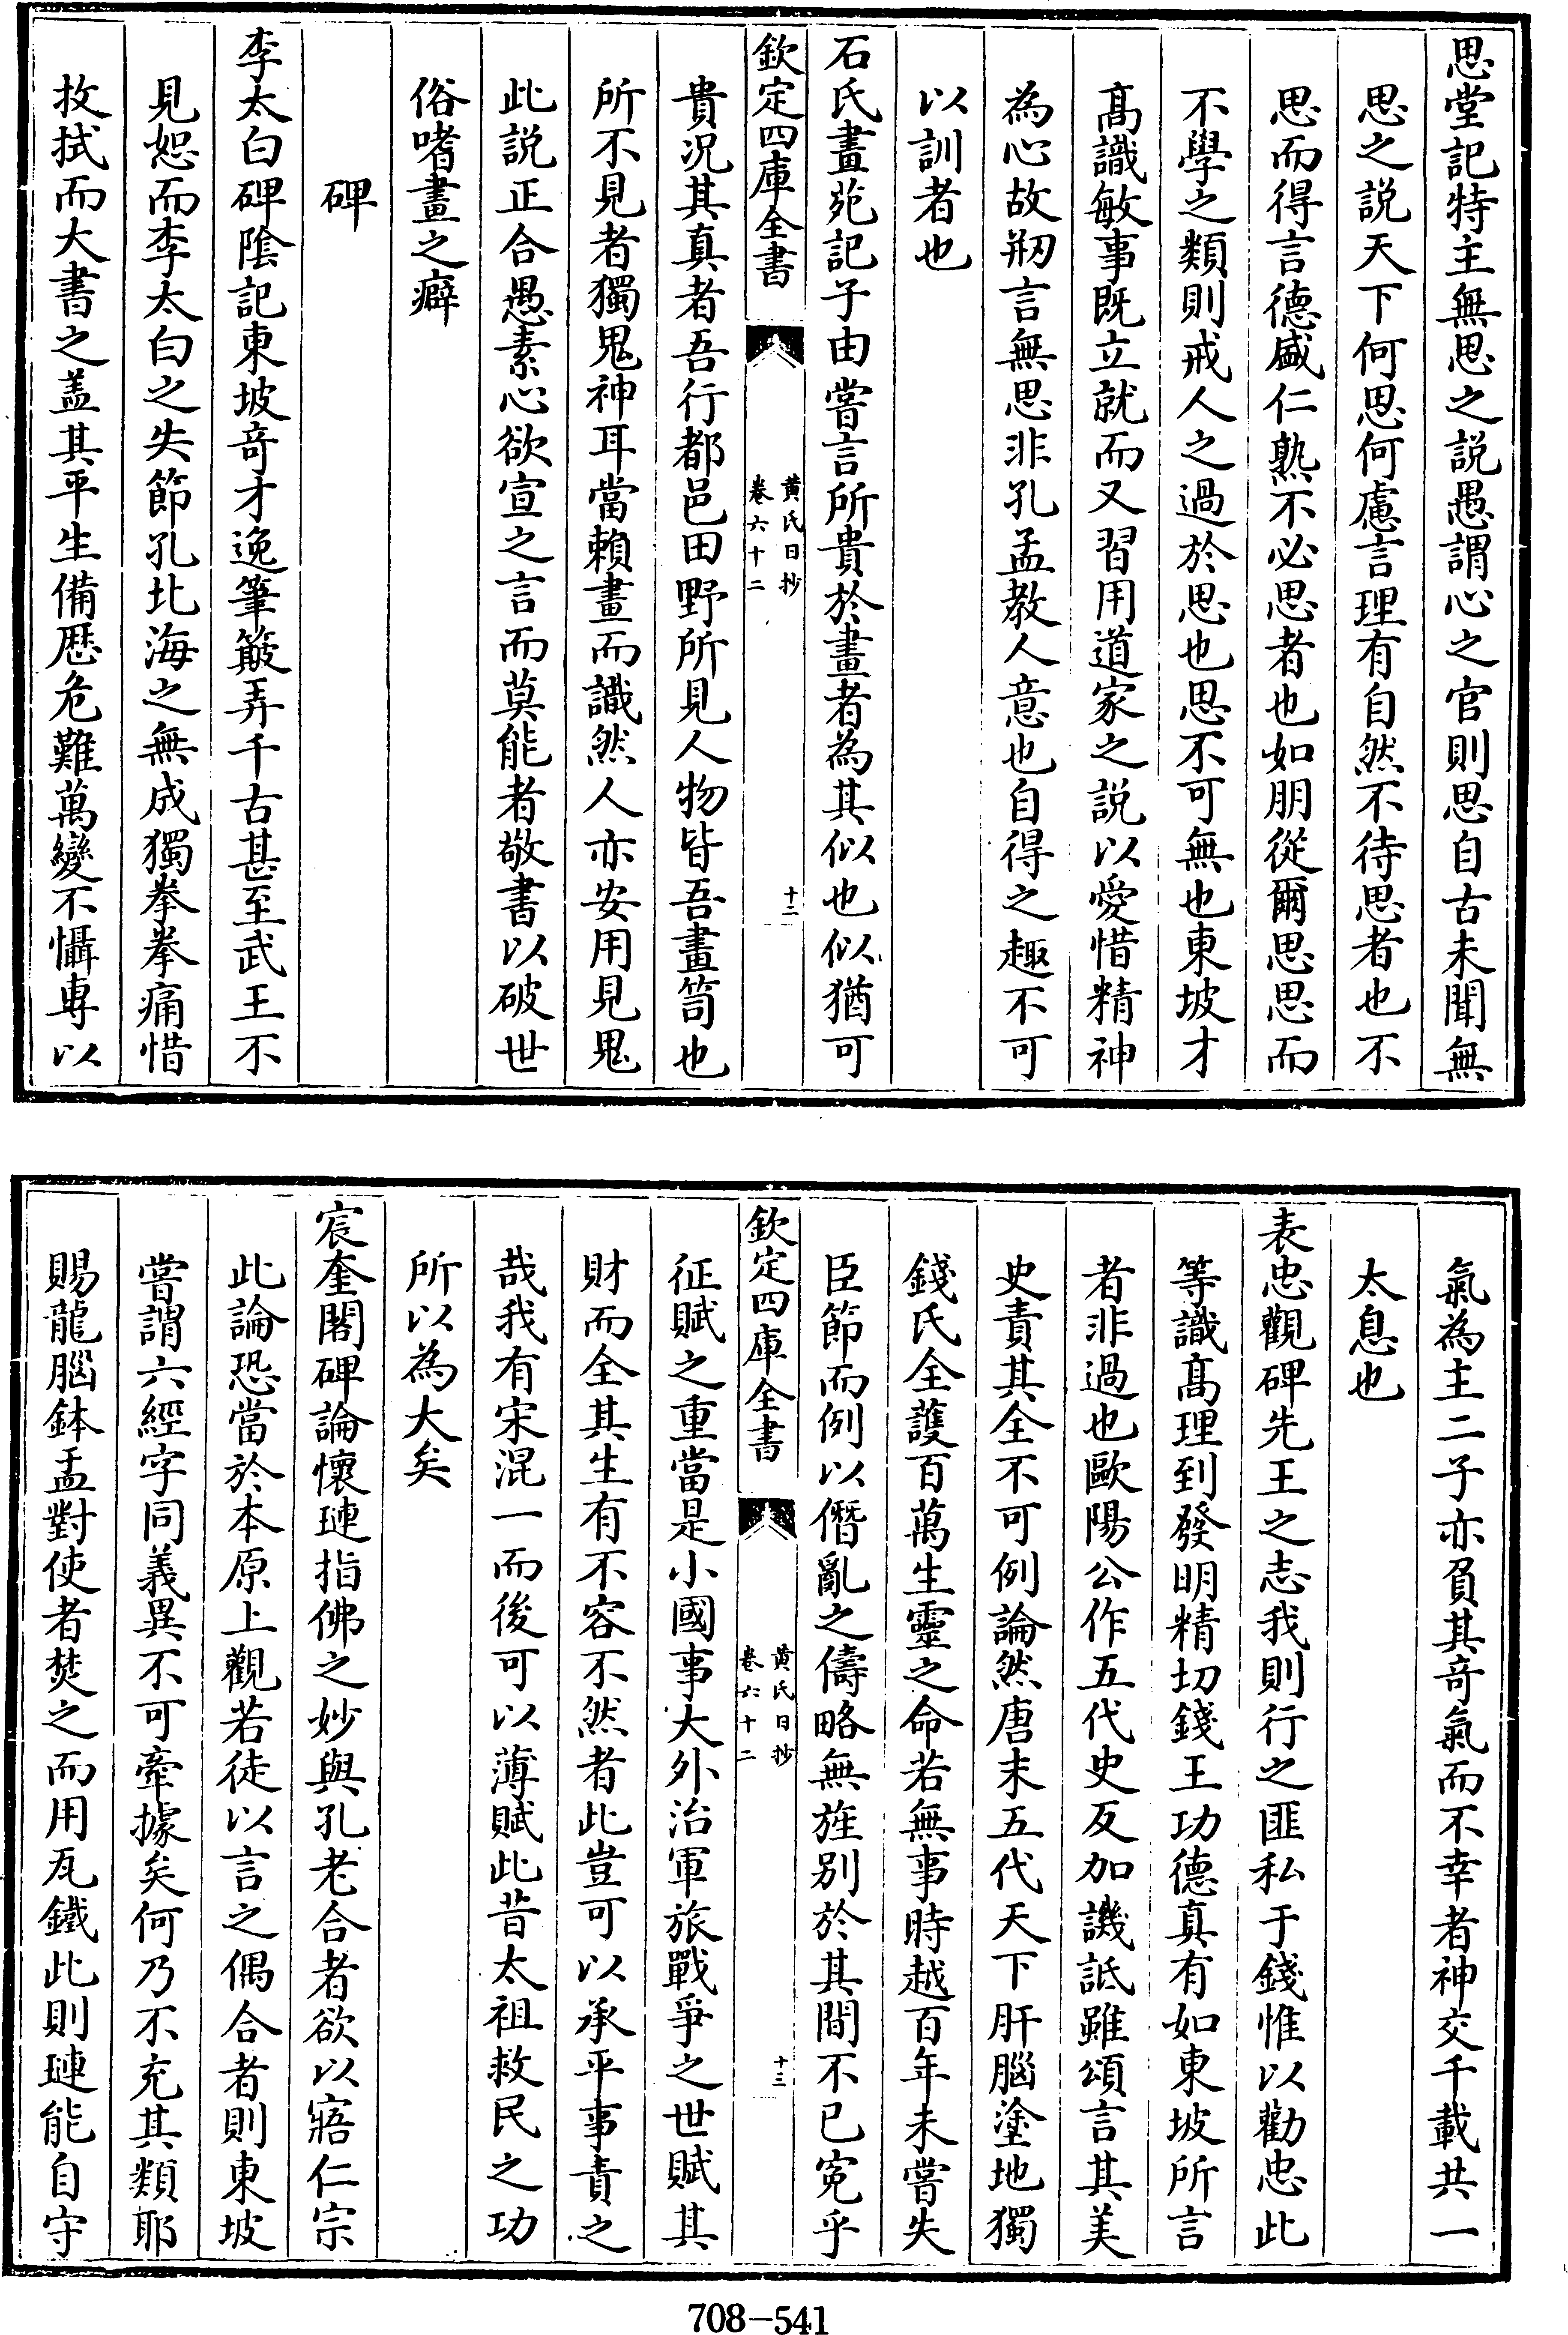 思堂記特主無思之説愚謂心之官則思自古未聞無
思之説天下何思何慮言理有自然不待思者也不
思而得言德盛仁熟不必思者也如朋從爾思思而
不學之類則戒人之過於思也思不可無也東坡才
髙識敏事既立就而又習用道家之説以愛惜精神
為心故剏言無思非孔孟教人意也自得之趣不可
以訓者也
石氏畫苑記子由嘗言所貴於畫者為其似也似猶可
欽定四庫全書
黄氏日抄
卷六十二
十二
貴況其真者吾行都邑田野所見人物皆吾畫笥也
所不見者獨鬼神耳當賴畫而識然人亦安用見鬼
此説正合愚素心欲宣之言而莫能者敬書以破世
俗嗜畫之癖
碑
李太白碑陰記東坡竒才逸筆簸弄千古甚至武王不
見恕而李太白之失節孔北海之無成獨拳拳痛惜
抆拭而大書之盖其平生備歴危難萬變不懾專以
氣為主二子亦負其竒氣而不幸者神交千載共一
太息也
表忠觀碑先王之志我則行之匪私于錢惟以勸忠此
等識髙理到發明精切錢王功德真有如東坡所言
者非過也歐陽公作五代史反加譏詆雖頌言其美
史責其全不可例論然唐末五代天下肝腦塗地獨
錢氏全䕶百萬生靈之命若無事時越百年未嘗失
臣節而例以僭亂之儔略無旌别於其間不已寃乎
欽定四庫全書
黄氏日抄
卷六十二
十三
征賦之重當是小國事大外治軍旅戰爭之世賦其
財而全其生有不容不然者此豈可以承平事責之
哉我有宋混一而後可以薄賦此昔太祖救民之功
所以為大矣
宸奎閣碑論懷璉指佛之妙與孔老合者欲以寤仁宗
此論恐當於本原上觀若徒以言之偶合者則東坡
嘗謂六經字同義異不可牽據矣何乃不充其類耶
賜龍腦鉢盂對使者焚之而用瓦鐵此則璉能自守
708-541